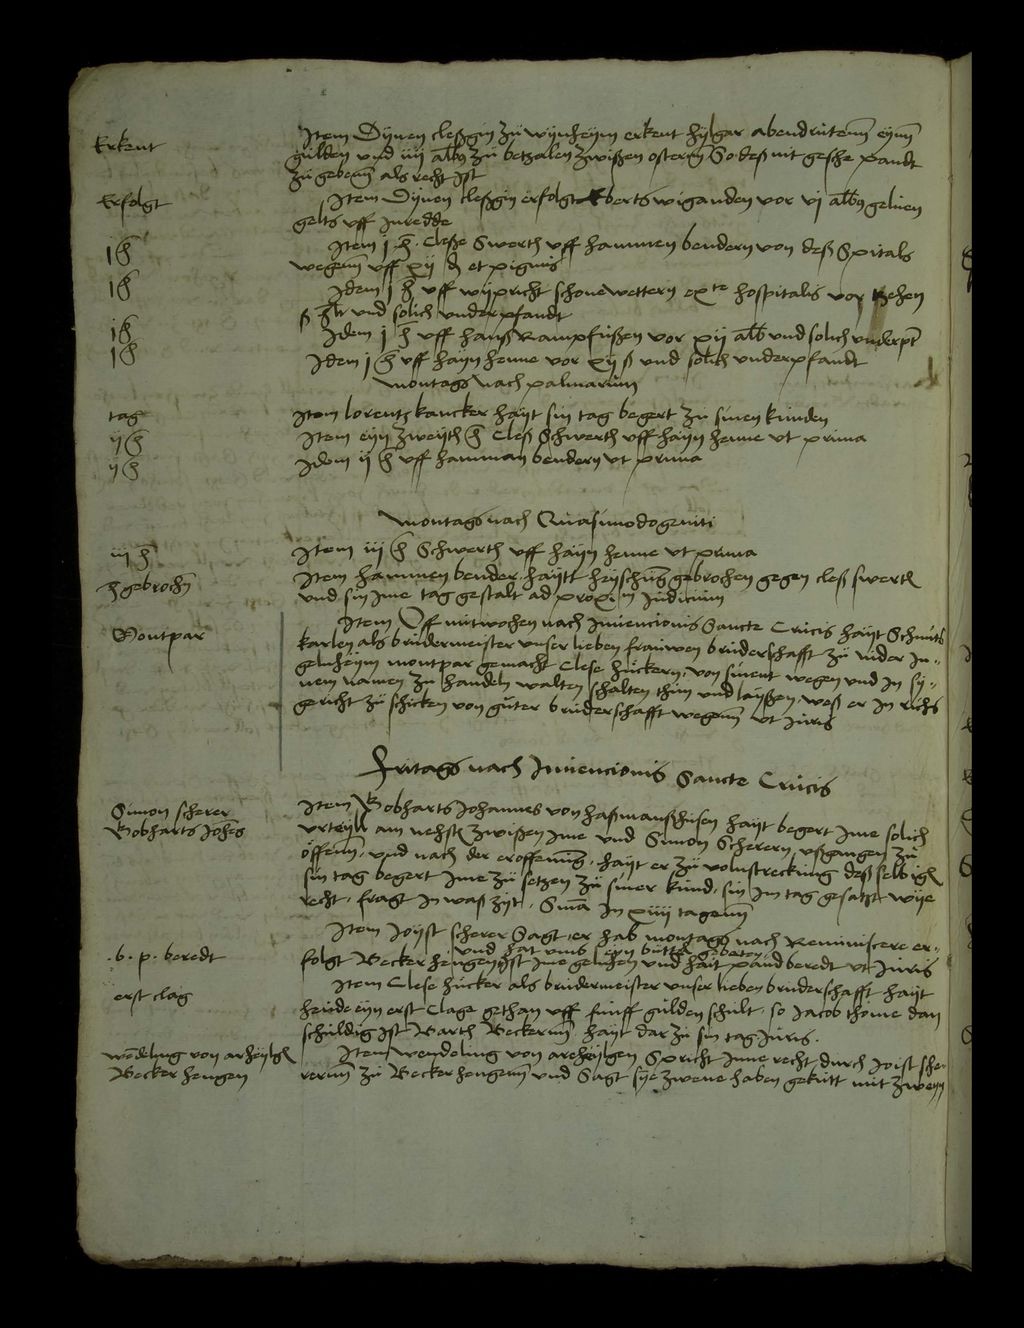 Erkent
Item Dynen cleßgin zu wynheym erkent hylgar abendrutenn eynn
gulden und iiij alb9 zu betzalen zwißen ostern So deß nit geschee pandt
zu gebenn als recht ist
Erfolgt
Item Dynen cleßgin erfolgt Ebberts wiganden vor vj alb9 geluen
gelts uff Inredde
j h
Item j h Cleße Swerth uff hammen bendern von deß Spitals
wegenn uff xij d et pignus
j h
Idem j h uff wypricht schonewettern ex te hospitalis vor
ß hlr und solich underpfandt
j h
Idem j h uff hanß Rampfußen vor xij alb und solich underpf
j h
Idem j h uff hayn henne vor xij ß und solich underpfandt
montags nach palmarum
tag
Item lorentz kancker hayt sin tag begert zu sinen kunden
ij h
Item eyn zweyth h Cleß Schwerth uff hayn henne ut prima
ij h
Idem ij h uff hamman bendern ut prima
montags nach Quasimodogeniti
iij h
Item iij h Schwerth uff hayn henne ut prima
h gebrochn
Item hammen bender haytt heyschung gebrochen gegen cleß swerth
und sin Ime tag gestalt ad proxim Iudicium
Montpar
Item Off mitwochen nach Invencionis Sancte Crucis hayt
karlen als brudermeister unser lieben frauwen bruderschafft zu nider In-
gelnheym montpar gemacht Clese huckern, von sinent wegen und In sy-
nem namen zu handeln walten schalten thun und layßen, weß er In richs
gericht zu schicken von guter bruderschafft wegenn ut Iuris
Fritags nach Invencionis Sancte Crucis
Simon scherer
Bobharts Johes
Item Bobharts Johannes von haßmanßhusen hayt begert Ime solich
urteyll am nehste zwißen Ime und Simon Scherern ußgangen zu
offenn, und nach der eroffenung, hayt er zu volnstreckung deß selbigen
sin tag begert Ime zu setzen zu siner kund, sin Im tag gesatzt wye
recht, fragt In waß zyt, Sma In xiiij tagenn
Item Joyst scherer Sagt, er hab montags nach Reminiscere er-
und hat umb eyn butte gebetten
.b. p. beredt
folgt Becker hengen ist Ime geluhen und hait pand beredt ut Iuris
erst clag
Item Clese hucker als brudermeister unser lieben bruderschafft hayt
heude eyn erst Clage gethan uff funff gulden schult, so Jacob thome dan
schuldig ist Barth Beckernn hayt dar zu sin tag Iuris.
wendeling von arheylgen
Becker hengen
Item wendeling von areheylgen Spricht Inne recht durch Joist sche-
rernn zu Becker hengenn und Sagt sye zwene haben gekutt mit zweyn